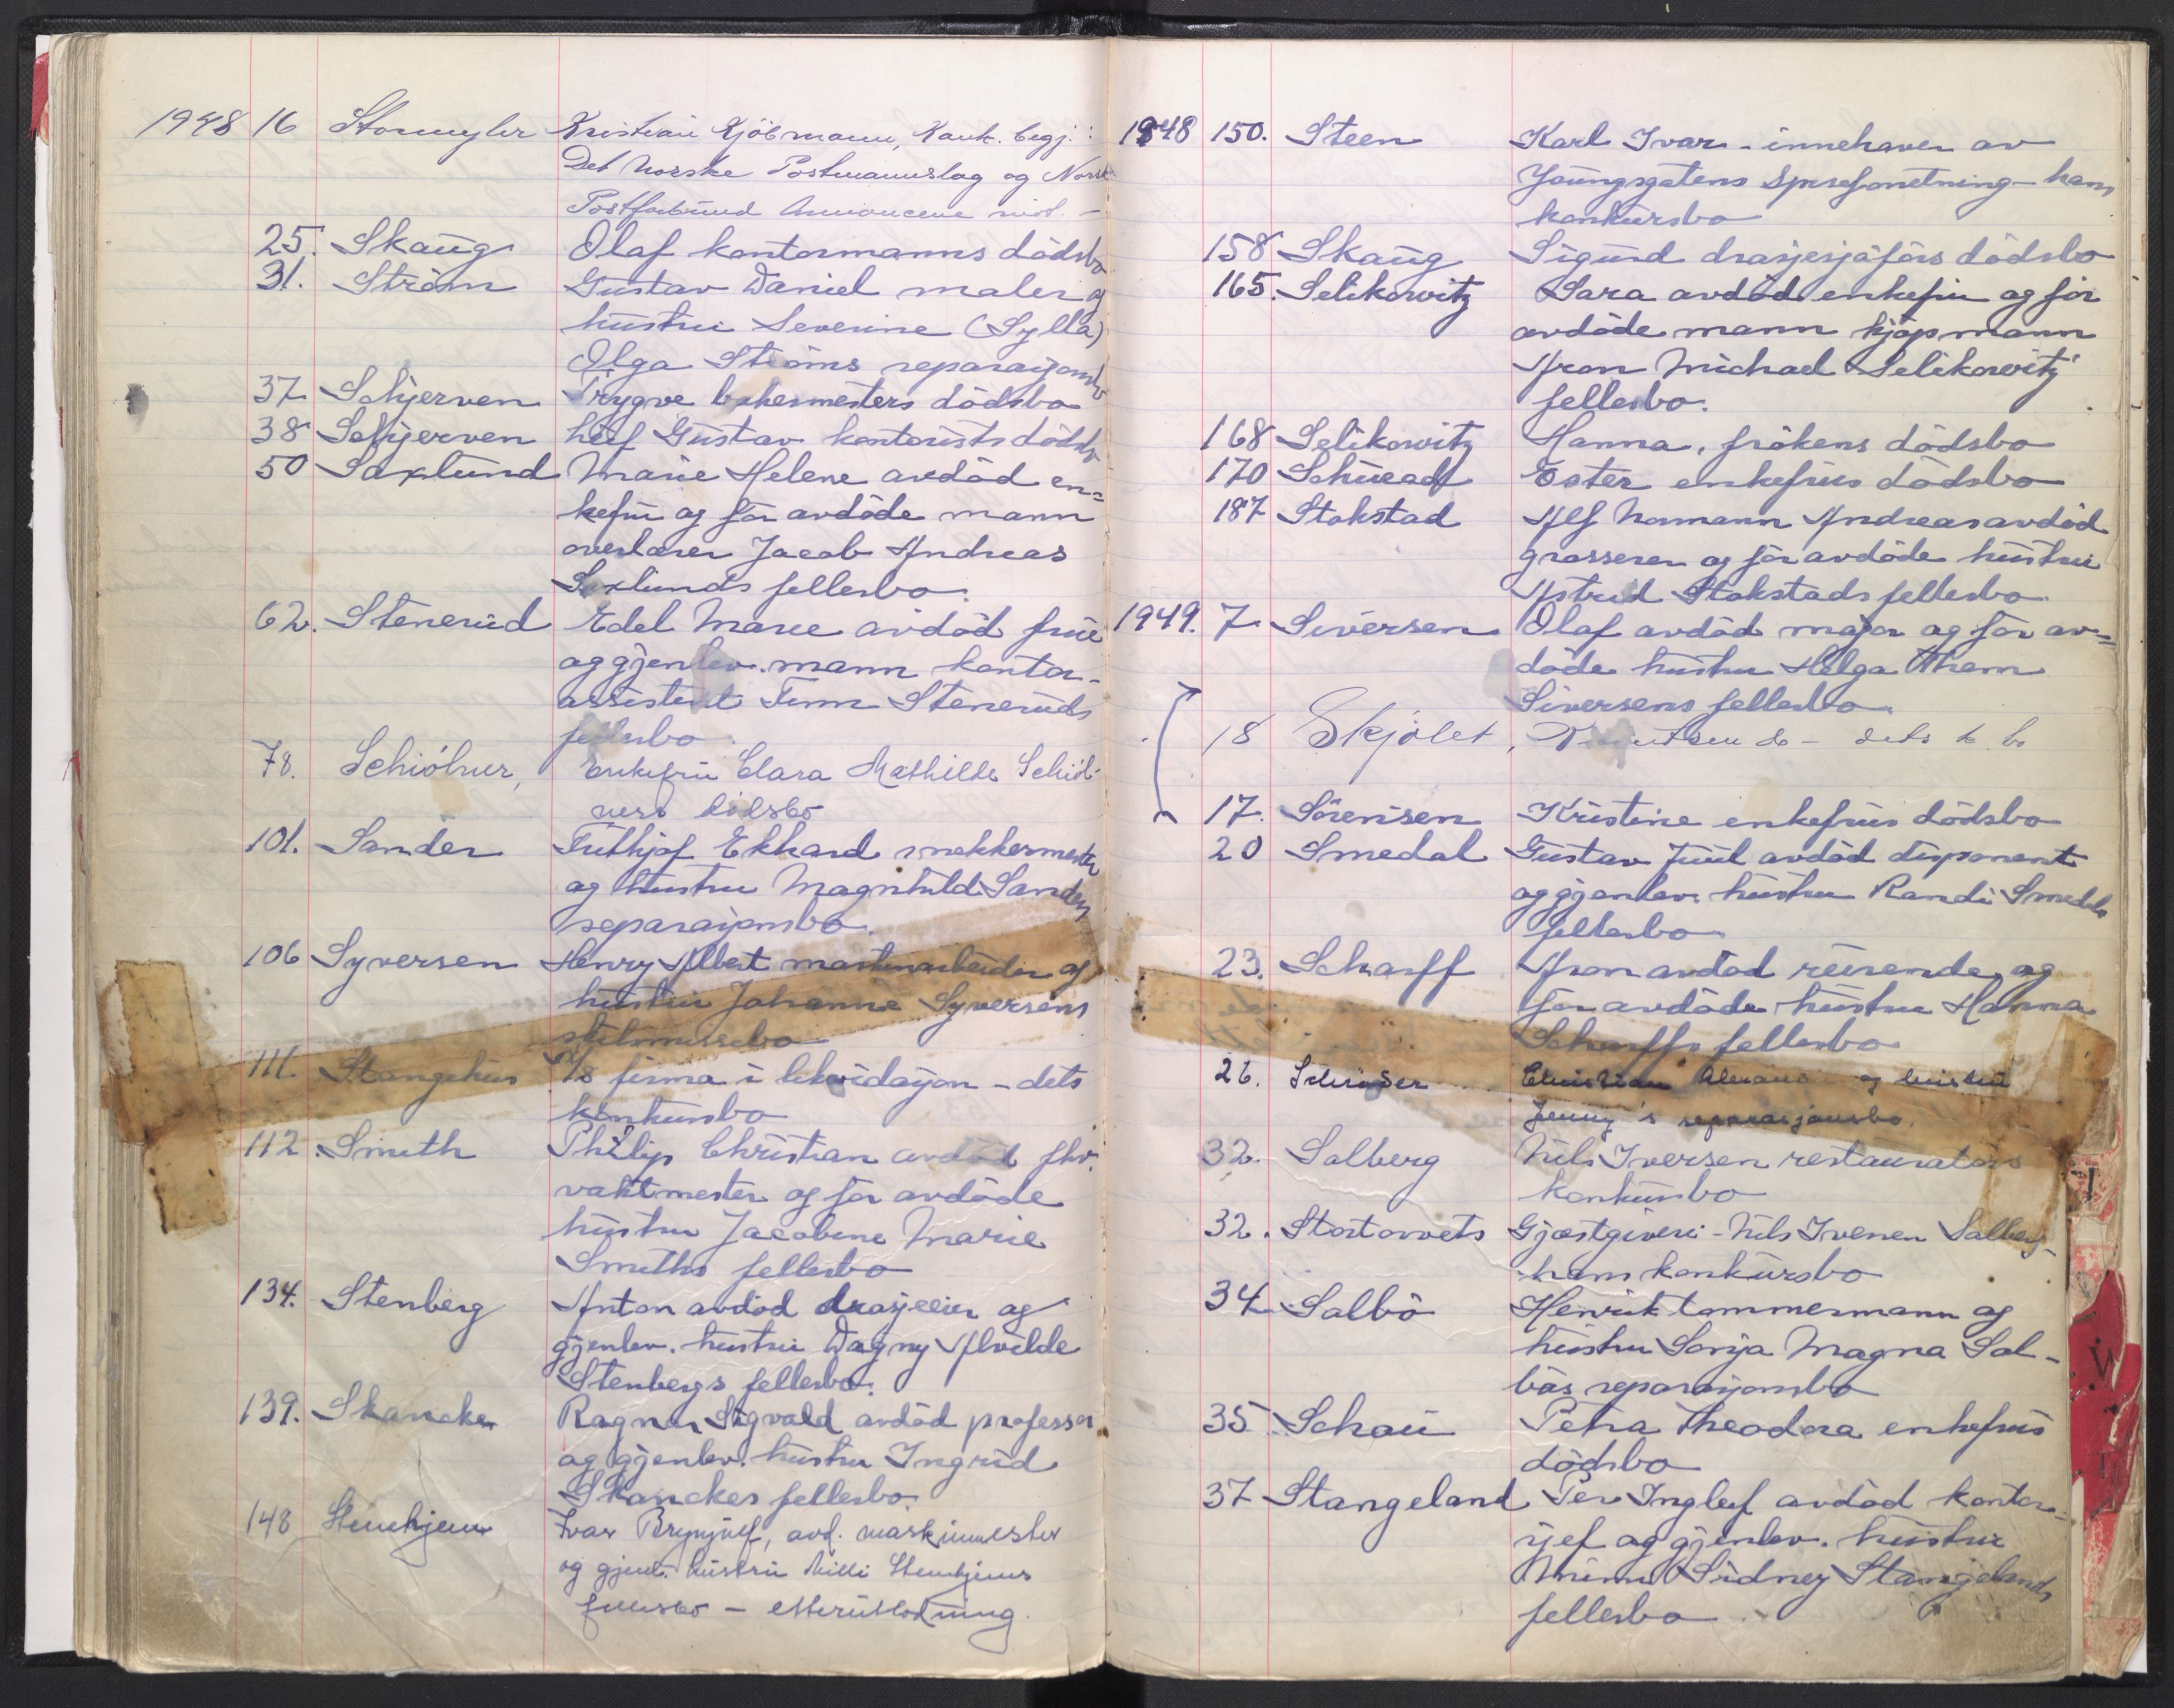 1948 16 Stormyhr Kristian Kjöbmann, Kauk. begj.:
Det norske Postmannslag og Norsk
Postforbund Annoncene
25. Skaug Olaf kontormanns dödsbo
31. Ström Gustav Daniel maler og
hustru Severine (Sylla)
Olga Ströms separasjonsbo
37 Schjerven Trygve bakermesters dödsbo
38 Schjerven Leif Gustav kontorists dödsbo
50 Saxlund Marie Helene avdöd en=
kefru og för avdöde mann
overlærer Jacob Andreas
Saxlunds fellesbo.
62. Stenerud Edel Marie avdöd frue
og gjenlev. mann kontor-
assistent Finn Steneruds
fellesbo.
78. Schiölner, Enkefru Clara Mathilde Schiöl-
ners dödsbo
101. Sander Frithjof Ekhard snekkermester
og hustru Magnhild Sanders
separasjonsbo.
106 Syversen Henry Albert murarbeider og
hustru Johanne Syversens
skilsmissebo
111. Stangehus A/S firma i likvidasjon - dets
konkursbo
112. Smith Philip Christian avdöd fhv.
vaktmester og för avdöde
hustru Jacobine Marie
Smiths fellesbo
134. Stenberg Anton avdöd drosjeeier og
gjenlev. hustru Dagny Alvilde
Stenbergs fellesbo.
139. Skancke Ragnar Sigvald avdöd professor
og gjenlev. hustru Ingrid
Skanckes fellesbo.
148 Stenehjem Ivar Brynjulf, avd. maskinmester
og gjenl. hustru Milli Stenehjems
fellesbo - etterutlodning.
1948 150. Steen Karl Ivar - innehaver av
Youngsgatens Spiseforretning - hans
konkursbo
158 Skaug Sigurd drosjesjåförs dödsbo
165. Selikowitz Sara avdöd enkefru og för
avdöde mann kjöpmann
Aron Michael Selikowitz'
fellesbo.
168 Selikowitz Hanna, frökens dödsbo
170 Ester enkefrus dödsbo
187 Stokstad Alf Normann Andreas avdöd
grosserer og för avdöde hustru
Astrid Stokstads fellesbo.
1949. 7 Siversen Olaf avdöd major og för av=
döde hustru Helga Them
Siversens fellesbo.
18 Skjolet, - dets k. bo
17. Sörensen Kristine enkefrus dödsbo
20 Smedal Gustav Juul avdöd disponent
og gjenlev. hustru Randi Smedals
fellesbo
23. Scharff Aron avdöd reisende og
för avdöde hustru Hanna
Scharffs fellesbo
26. Christian og hustru
Jenny's separasjonsbo.
32. Salberg Nils Iversen restauratörs
konkursbo
32. Stortorvets Gjæstgiveri - Nils Iversen Salberg-
hans konkursbo
34 Salbö Henrik tømmermann og
hustru Sonja Magna Sal-
bös separasjonsbo
35 Schou Petra Theodora enkefrus
dödsbo
37 Stangeland Per Ingleif avdöd kontor=
sjef og gjenlev. hustru
Mimi Sidney Stangelands
fellesbo